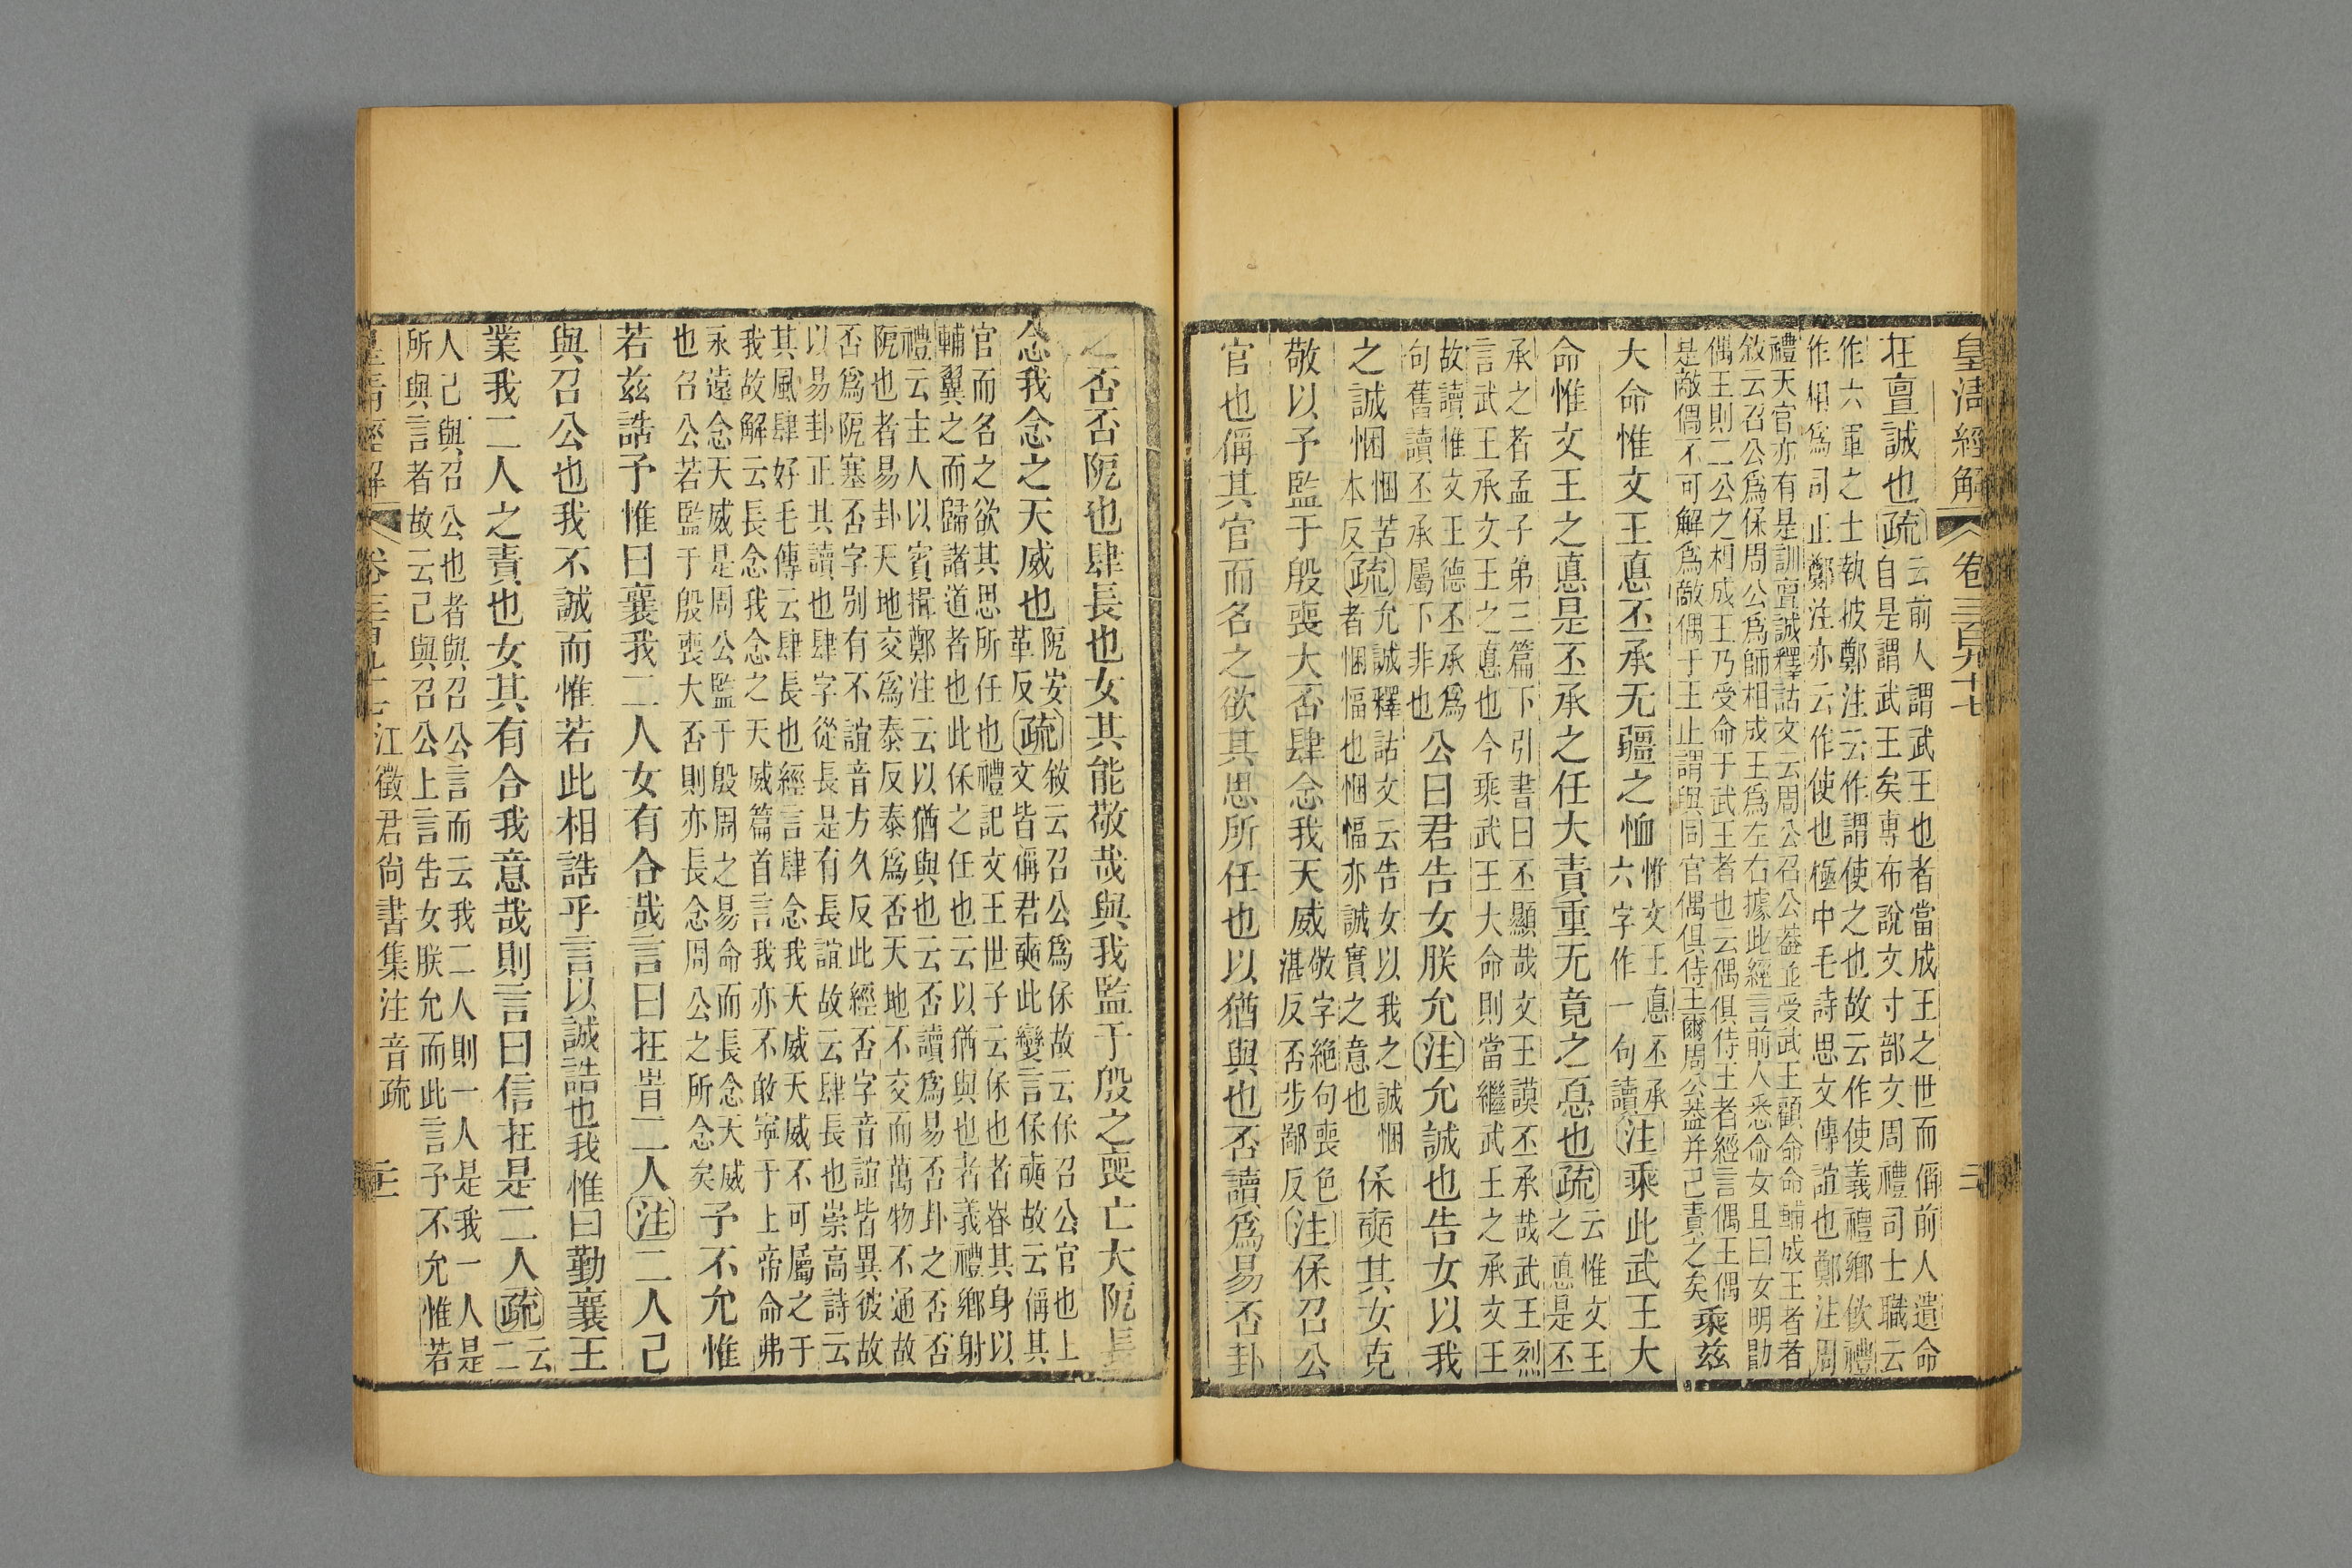 皇淸經解 卷三百九十七 二
在亶誠也疏云前人謂武王也者當成王之世而偁前人遣命
自是謂武王矣專布說文寸部文周禮司士職云
作六軍之士執披鄭注云作謂使之也故云作使義禮鄉飮禮
作相爲司正鄭注亦云作使也極中毛詩思文傳誼也鄭注周
禮天官亦有是訓亶誠釋詁文云周公召公葢並受武王顧命命輔成王者者
敘云召公爲保周公爲師相成王爲左右據此經言前人悉命女且曰女明勖
偶王則二公之相成王乃受命于武王者也云偶俱侍王者經言偶王偶
是敵偶不可解爲敵偶于王止謂與同官偶俱侍王爾周公葢并己責之矣乘茲
大命惟文王悳丕承无疆之恤惟文王悳丕承六字作一句讀注乘此武王大
命惟文王之悳是丕承之任大責重无竟之𢝊也疏云惟文王之悳是丕
承之者孟子弟三篇下引書曰丕顯哉文王謨丕承哉武王烈
言武王承文王之悳也今乘武王大命則當繼武王之承文王
故讀惟文王德丕承爲句舊讀丕承屬下非也公曰君告女朕允注允誠也告女以我
之誠悃悃苦本反疏允誠釋詁文云告女以我之誠悃者悃愊也悃愊亦誠實之意也保奭其女克
敬以予監于殷喪大否肆念我天威敬字絕句喪色湛反否步鄙反注保召公
官也偁其官而名之欲其思所任也以猶與也否讀爲易否卦
之否否阸也肆長也女其能敬哉與我監于殷之喪亡大阸長
念我念之天威也阸安革反疏敘云召公爲保故云保召公官也上
文皆偁君奭此變言保奭故云偁其
官而名之欲其思所任也禮記文王世子云保也者眘其身以
輔翼之而歸諸道者也此保之任也云以猶與也者義禮鄉射
禮云主人以賓揖鄭注云以猶與也云否讀爲易否卦之否否
阸也者易卦天地交爲泰反泰爲否天地不交而萬物不通故
否爲阸塞否字別有不誼音方久反此經否字音誼皆異彼故
以易卦正其讀也肆字從長是有長誼故云肆長也崇高詩云
其風肆好毛傳云肆長也經言肆念我天威天威不可屬之于
我故解云長念我念之天威篇首言我亦不敢寧于上帝命弗
永遠念天威是周公監于殷周之易命而長念天威
也召公若監于殷喪大否則亦長念周公之所念矣予不允惟
若茲誥予惟曰襄我二人女有合哉言曰在旹二人注二人己
與召公也我不誠而惟若此相誥乎言以誠誥也我惟曰勤襄王
業我二人之責也女其有合我意哉則言曰信在是二人疏云二
人己與召公也者與召公言而云我二人則一人是我一人是
所與言者故云己與召公上言告女朕允而此言予不允惟若
皇淸經解 卷三百九十七 江徵君尙書集注音疏 二十